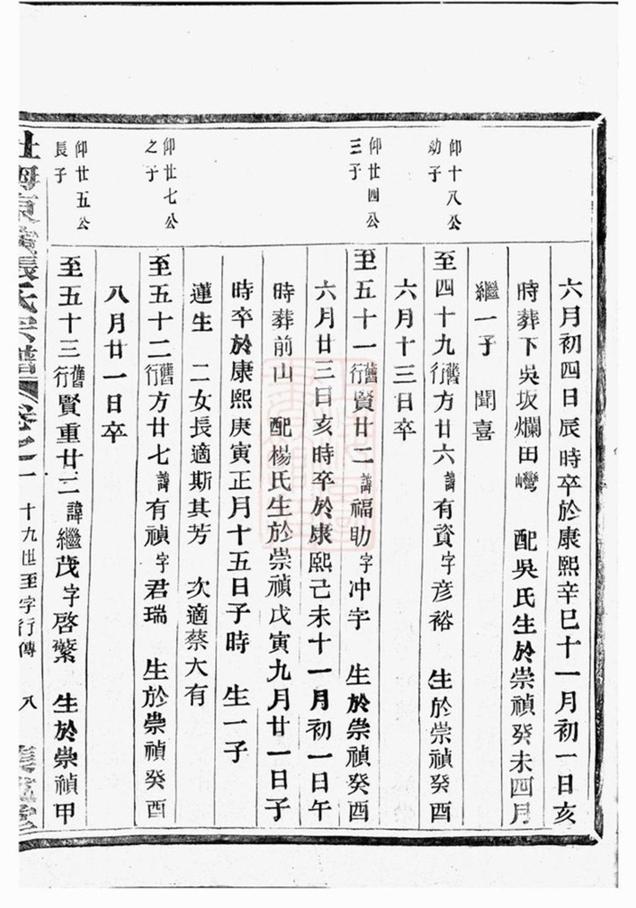 六月初四日辰時卒於康熙辛巳十一月初一日亥
時葬下吳坂爛田灣 配吳氏生於崇禎癸未四月
繼一子 聞喜
仰十八公
幼子
至四十九舊行方廿六諱有資字彥裕 生於崇禎癸酉
六月十三日卒
仰廿四公
三子
至五十一舊行賢廿二諱福助字冲字 生於崇禎癸酉
六月廿三日亥時卒於康熙己未十一月初一日午
時葬前山 配楊氏生於崇禎戊寅九月廿一日子
時卒於康熙庚寅正月十五日子時 生一子
蓮生 二女長適斯其芳 次適蔡大有
仰廿七公
之子
至五十二舊行方廿七諱有禎字君瑞 生於崇禎癸酉
八月廿一日卒
仰廿五公
長子
至五十三舊行賢重廿三諱繼茂字啓繁 生於崇禎甲
張氏宗譜 卷之二 十九世至字行傳 八